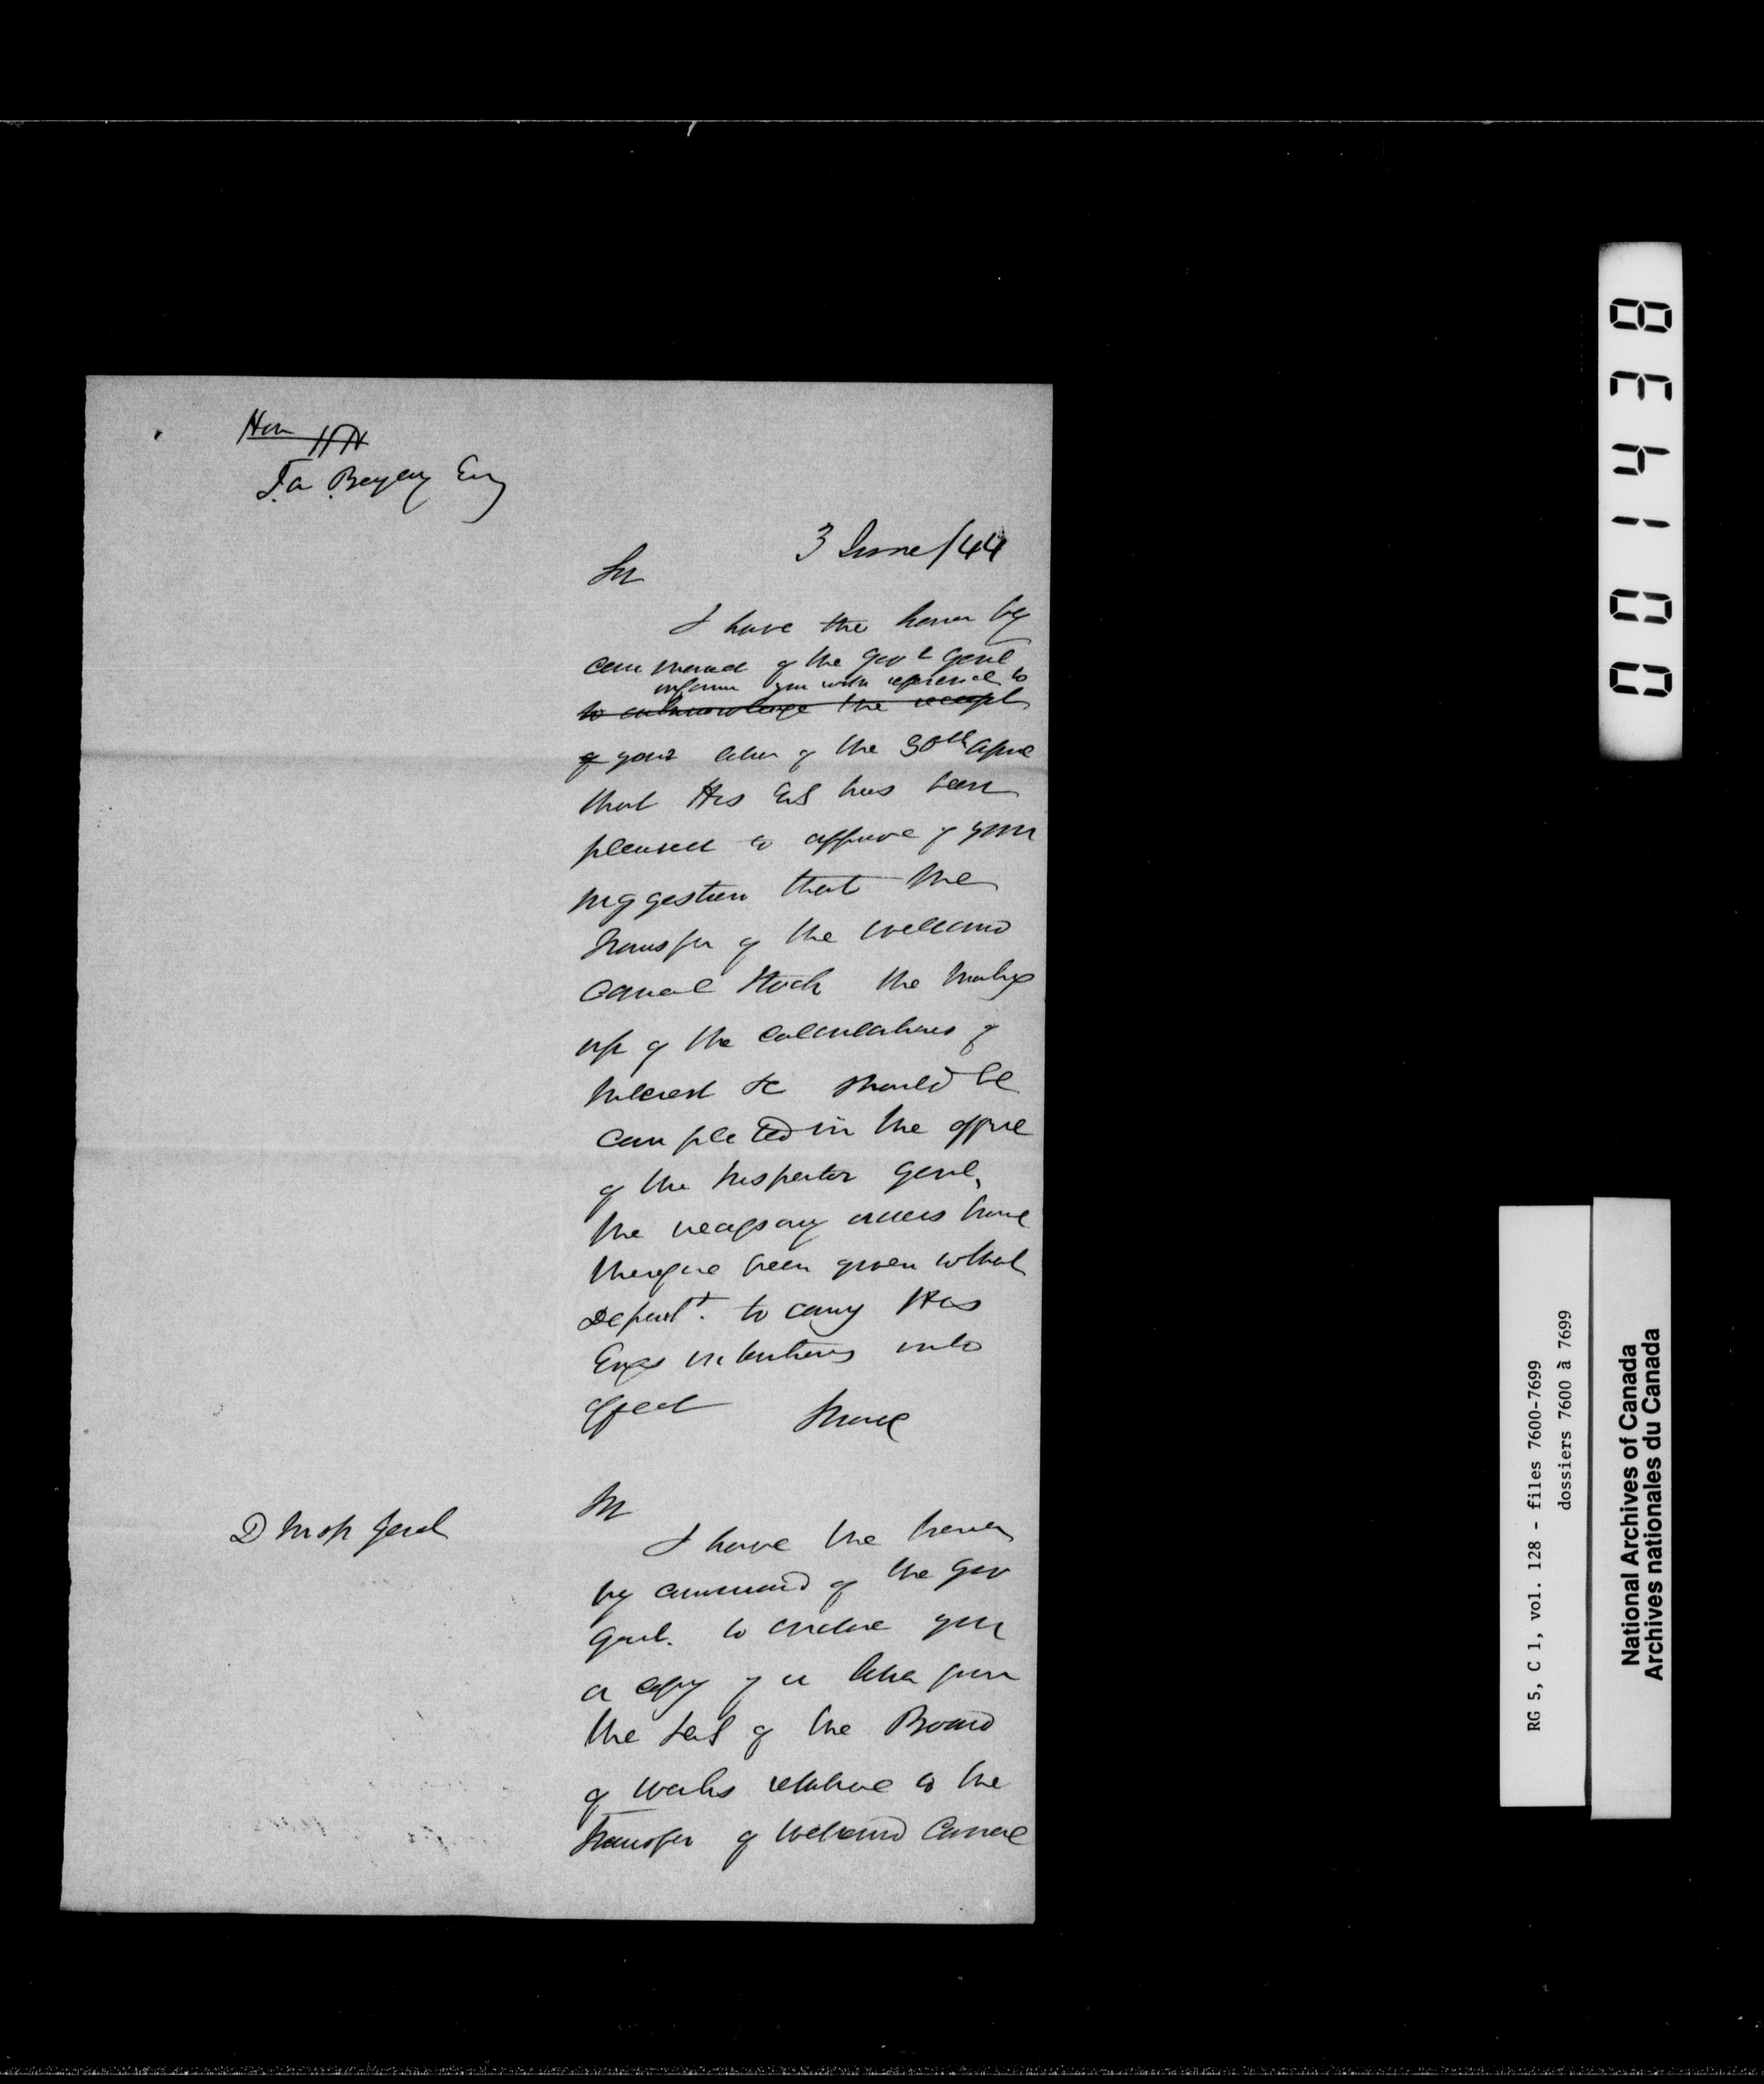 Hon HH
T. A. Begly Esq
3 June/44
Sir
I have the honor by
command of the Gov r Genl
inform you with reference to
to acknowledge the receipt
of your letter of the 30th April
that His Ex has been
pleased to approve of your
suggestion that the
transfer of the Welland
Canal Stock the making
up of the calculations of
Interest &c should be
completed in the office
of the Inspector Genl,
the necessary orders have
therefore been given to that
Depart t. to carry His
Exys intentions into
effect
Sir
D Insp Genl
I have the honor
by command of the Gov
Genl. to enclose you
a copy of a letter from
the Sec of the Board
of Works relative to the
Transfer of Welland Canal
001438
RG 5, C 1, vol. 128 - files 7600-7699
dossiers 7600 à 7699
National Archives of Canada
Archives nationales du Canada